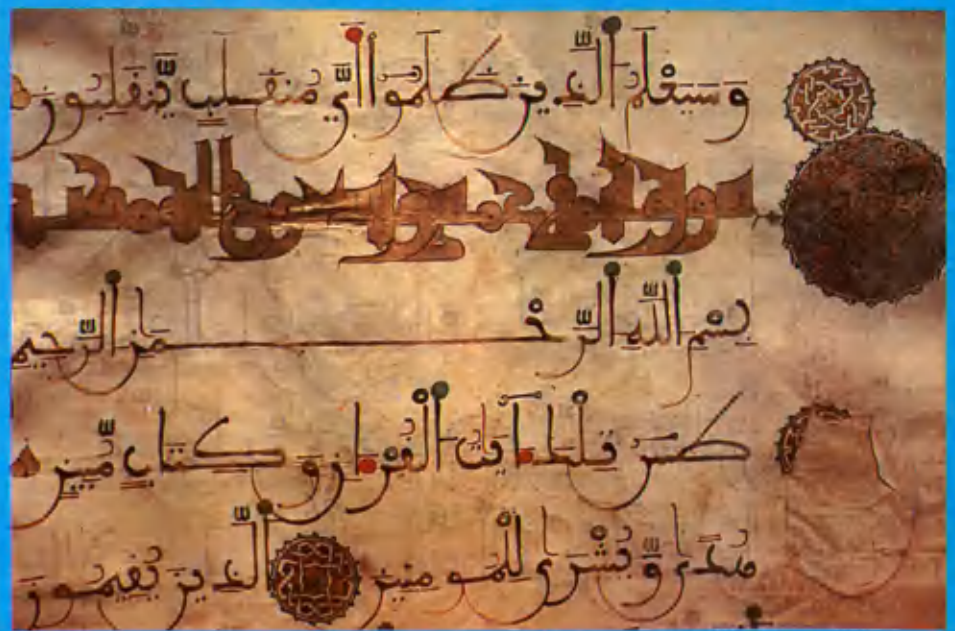 وَسَيَعْلَمُ الَّذِينَ ظَلَمُوا أَيَّ مُنقَلَبٍ يَّنقَلِبُونَ
بِسْمِ اللَّهِ الرَّحْمَٰنِ الرَّحِيمِ
طسٓ تِلْكَ ءَايَٰتُ الْقُرْءَانِ وَكِتَابٍ مُّبِينٍ
هُدًى وَّبُشْرَىٰ لِلْمُومِنِينَ الَّذِينَ يُقِيمُونَ